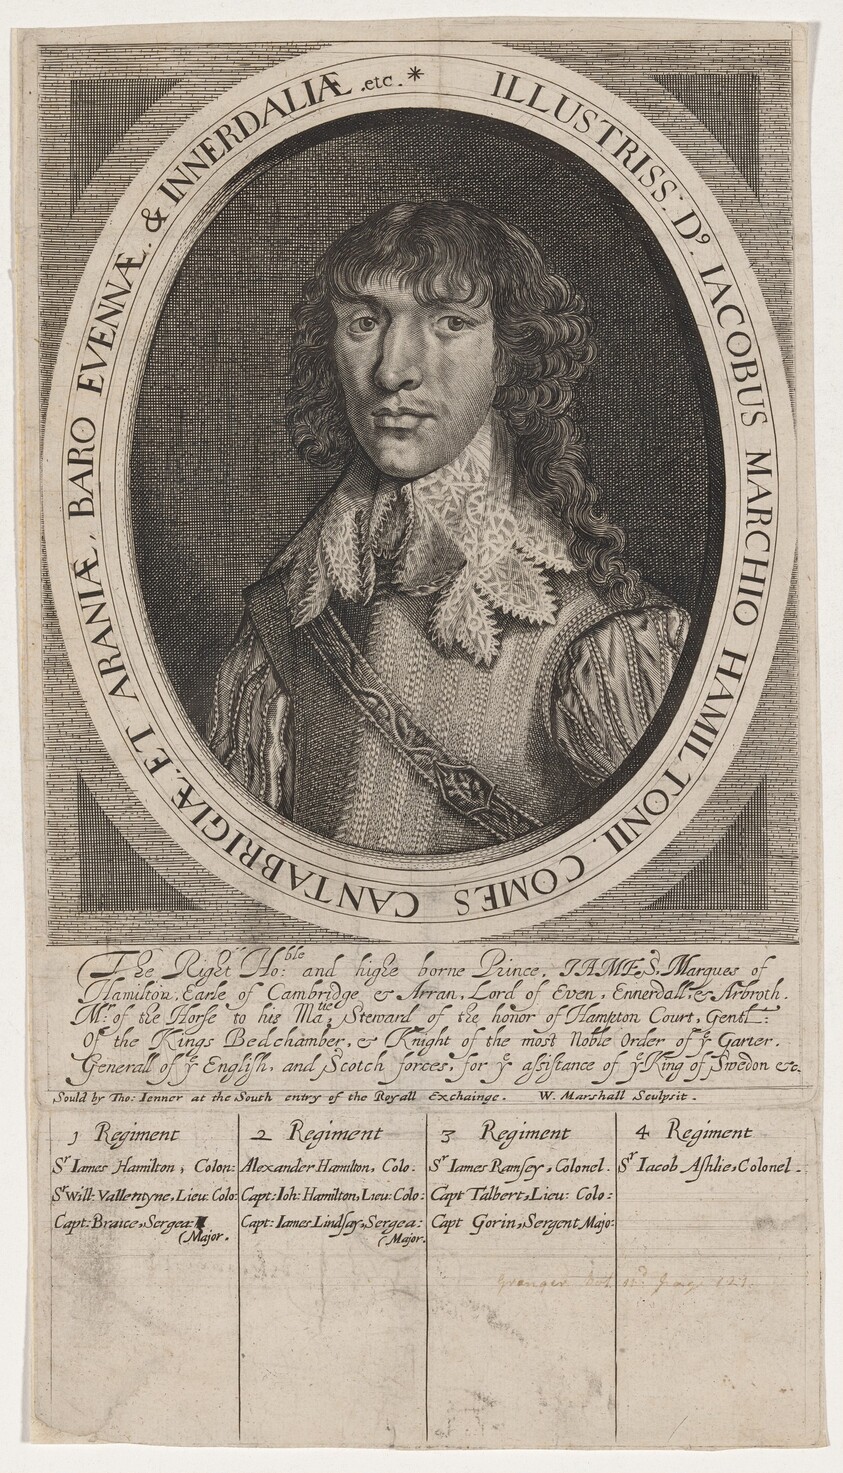 ILLUSTRISS: D⁹. IACOBUS MARCHIO HAMILTONII. COMES CANTABRIGIÆ. ET ARANIÆ, BARO EVENNÆ. & INNERDALIÆ .etc. *
The Right Ho:ble and highe borne Prince, IAMES, Marques of
Hamilton, Earle of Cambridge & Arran, Lord of Even, Ennerdall, & Arbroth.
Mr. of the Horse to his Matie: Steward of the honor of Hampton Court, Gentl:
Of the Kings Bedchamber, & Knight of the most Noble Order of ye Garter.
Generall of ye English, and Scotch forces, for ye assistance of ye King of Swedon &c.
Sould by Tho: Ienner at the South entry of the Royall Exchainge. W. Marshall Sculpsit.
1 Regiment
Sr Iames Hamilton, Colon:
Sr Will: Vallentyne, Lieu: Colo:
Capt: Braice, Sergea:
(Major.
2 Regiment
Alexander Hamilton, Colo.
Capt: Ioh: Hamilton, Lieu: Colo:
Capt: Iames Lindsay, Sergea:
(Major.
3 Regiment
Sr Iames Ramsey, Colonel.
Capt Talbert, Lieu: Colo:
Capt Gorin, Sergent Majo:
4 Regiment
Sr Iacob Ashlie, Colonel.
Granger